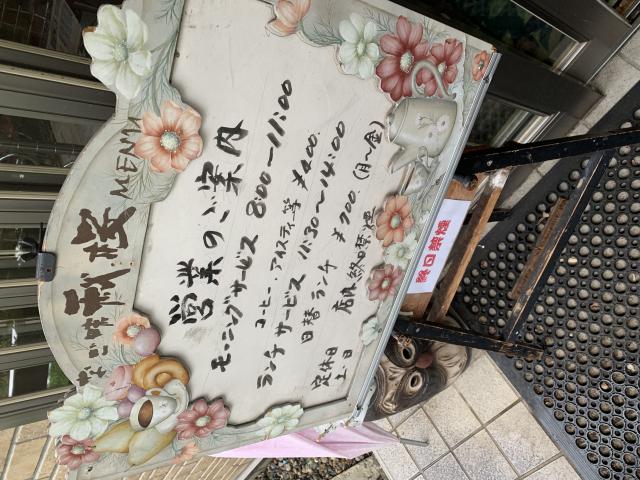 MENU
営業のご案内
モーニングサービス 8:00〜11:00
コーヒー、アイスティ等 ¥400.
ランチサービス 11:30〜14:00
日替ランチ ¥700.(月〜金)
定休日 店内終日禁煙
土・日
終日禁煙